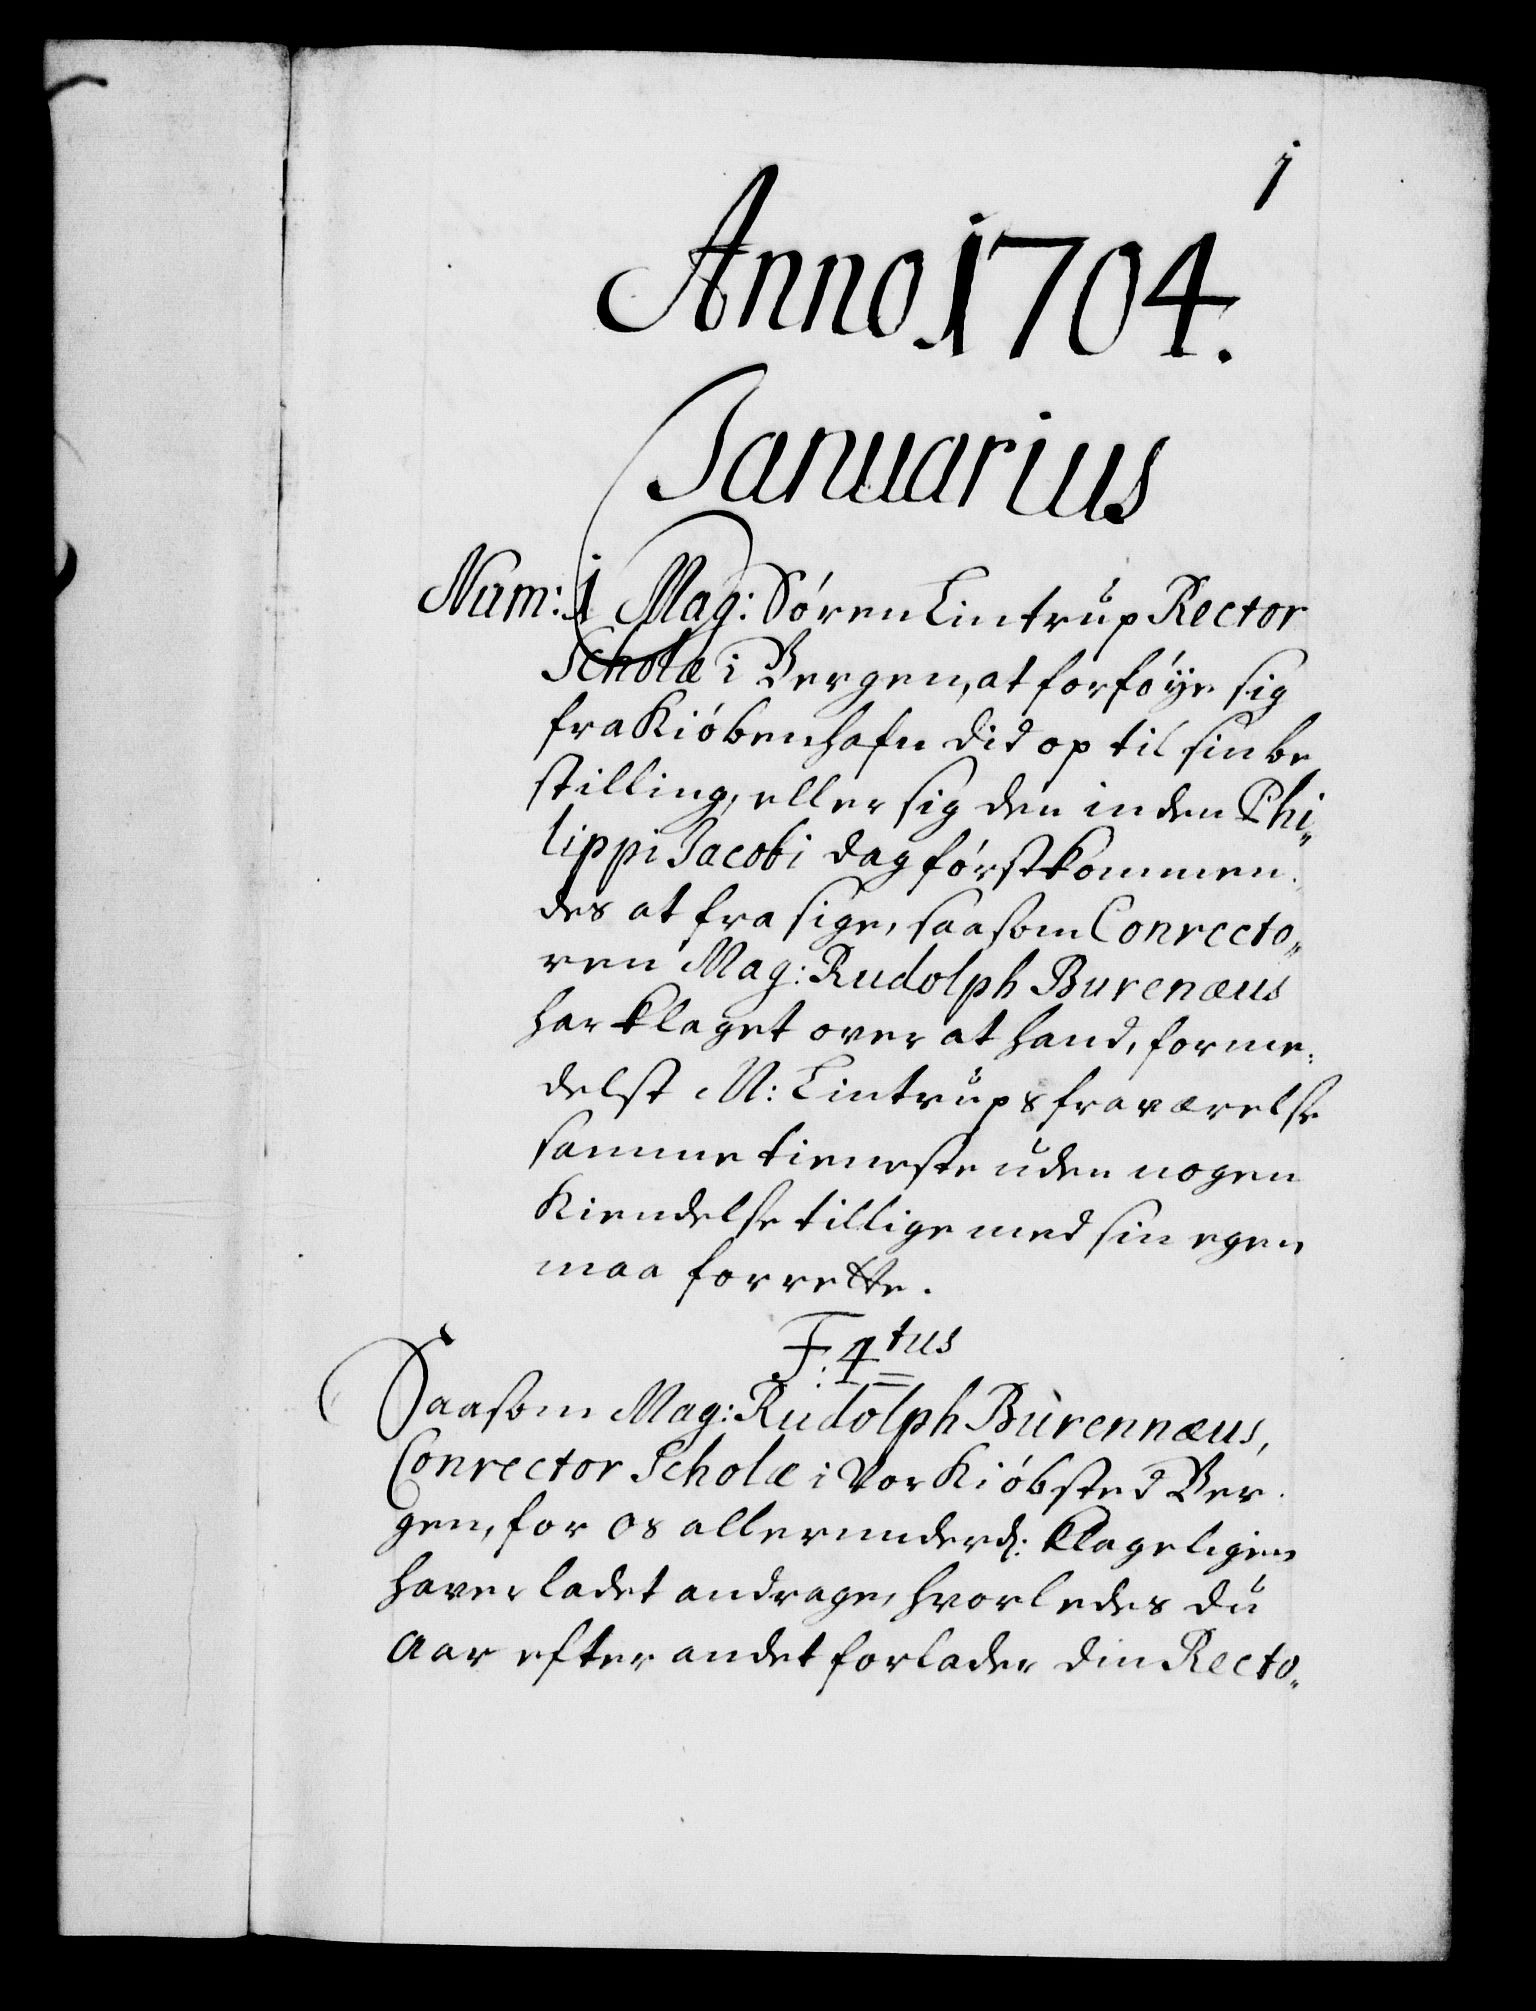 1
Anno 1704.
Januarius
Num: 1 Mag: Sören Lintrup Rector
Scholæ i Bergen, at forföye sig
fra Kiöbenhafn did op til sin be
stilling, eller sig den inden Phi„
lippi Jacobi dag förstkommen.
des at fra sige, saasom Conrecto„
ren Mag: Rudolph Burenæus
har klaget over at hand, forme:
delst M: Lintrups fraværelse
samme tieneste uden nogen
Kiendelse tillige med sin egen
maa forrette.
F: 4tus
Saasom Mag: Rudolph Burennæus,
Conrector Scholæ i Vor Kiöbsted Ber.
gen, for os allerunderd: klageligen
haver ladet andrage, hvorledes du
Aar efter andet forlader din Recto„